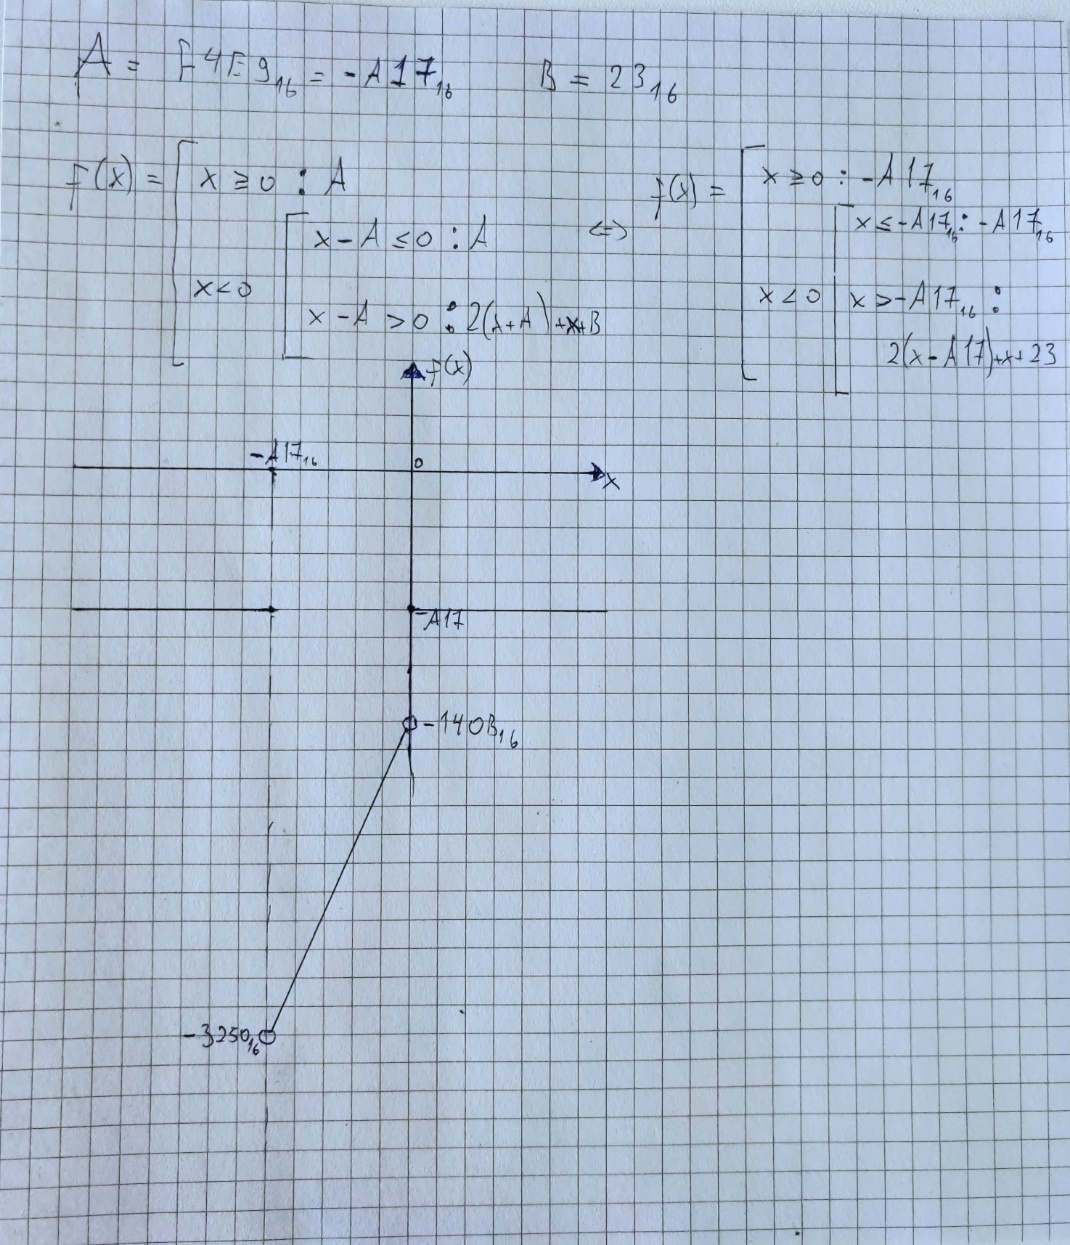 A = F4E9₁₆ = -A17₁₆ B = 23₁₆
f(x) = [ x ≥ 0 : A
[ x - A ≤ 0 : A
x < 0
x - A > 0 : 2(x+A)+x+B
⇔
f(x) = [ x ≥ 0 : -A17₁₆
[ x ≤ -A17₁₆ : -A17₁₆
x < 0
x > -A17₁₆ :
2(x - A17)+x+23
f(x)
-A17₁₆
0
x
-A17
-140B₁₆
-3250₁₆